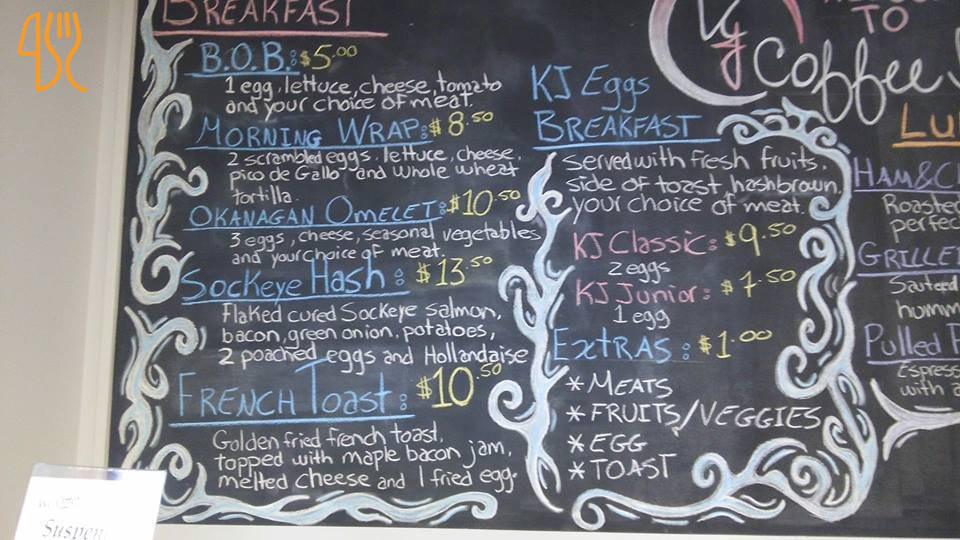 BREAKFAST
B.O.B.: $5.00
1 egg, lettuce, cheese, tomato
and your choice of meat.
MORNING WRAP: $8.50
2 scrambled eggs, lettuce, cheese,
pico de Gallo and whole wheat
tortilla.
OKANAGAN OMELET: $10.50
3 eggs, cheese, seasonal vegetables
and your choice of meat.
Sockeye Hash: $13.50
Flaked cured Sockeye salmon,
bacon, green onion, potatoes,
2 poached eggs and Hollandaise
FRENCH Toast: $10.50
Golden fried french toast,
topped with maple bacon jam,
melted cheese and 1 fried egg.
KJ Eggs
BREAKFAST
served with fresh fruits,
side of toast, hashbrown,
your choice of meat.
KJ Classic: $9.50
2 eggs
KJ Junior: $7.50
1 egg
ExtRAS: $1.00
* MEATS
* FRUITS/VEGGIES
* EGG
* TOAST
TO
KJ
Coffee
Roasted
Sauteed
Pulled
with